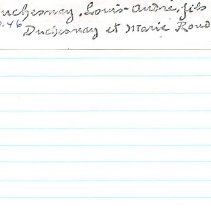 uchesnay, Louis-André, fils
-46 Duchesnay et Marie Roud